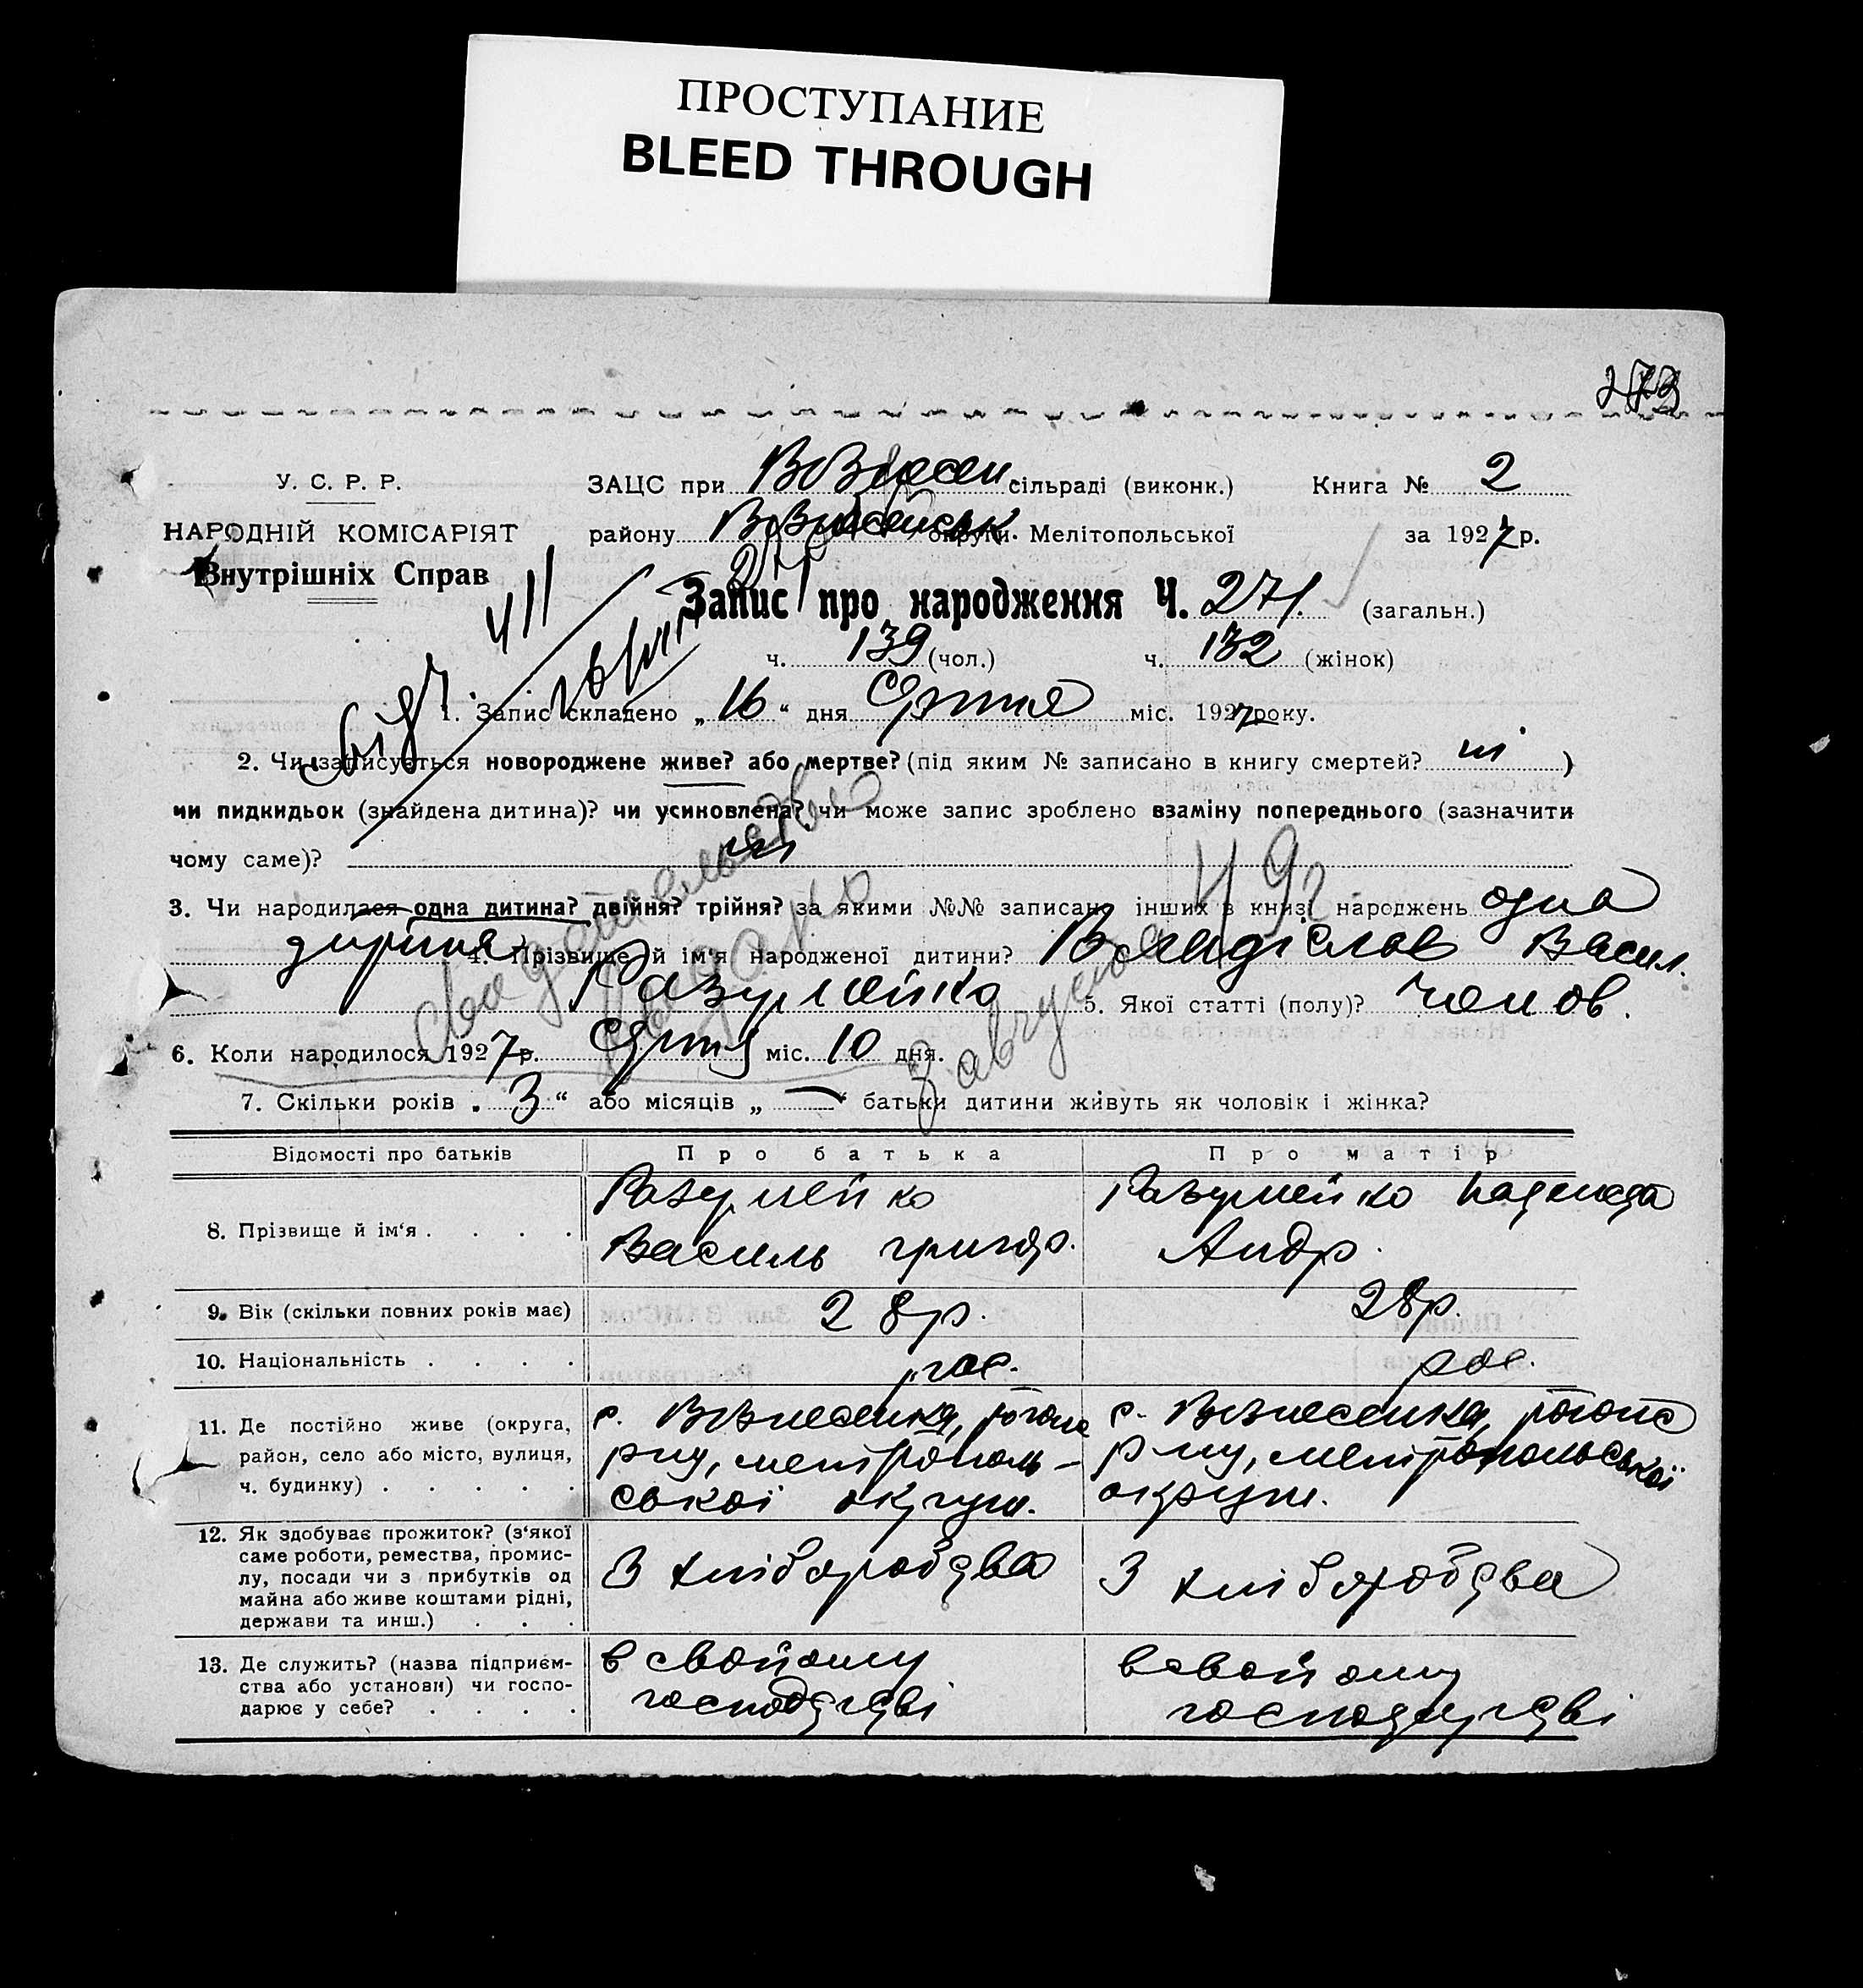 ПРОСТУПАНИЕ
BLEED THROUGH
273
У. С. Р. Р.
НАРОДНІЙ КОМІСАРІЯТ
Внутрішніх Справ
ЗАЦС при Вознесен. сільраді (виконк.) Книга № 2
району округи Мелітопольської за 1927 р.
271
Запис про народження Ч. 271. (загальн.)
ч. 139 (чол.) ч. 132 (жінок)
1. Запис складено „ 16 “ дня Серпня міс. 1927 року.
2. Чи записується новороджене живе? або мертве? (під яким № записано в книгу смертей? ні )
чи пидкидьок (знайдена дитина)? чи усиновлена? чи може запис зроблено взаміну попереднього (зазначити
чому саме)? ні
3. Чи народилася одна дитина? двійня? трійня? за якими №№ записано інших в книзі народжень одна
дитина 4. Прізвище й ім'я народженої дитини? Владіслав Васил.
Разумейко 5. Якої статті (полу)? Чолов.
6. Коли народилося 1927 р. Серпня міс. 10 дня.
7. Скільки років „ 3 “ або місяців „ — “ батьки дитини живуть як чоловік і жінка?
Відомості про батьків Про батька Про матір
8. Прізвище й ім'я . . . . Разумейко Василь Григор. Разумейко Надежда Андр.
9. Вік (скільки повних років має) 28 р. 28 р.
10. Національність . . . . рос. рос.
11. Де постійно живе (округа, район, село або місто, вулиця, ч. будинку) . . . . . с. Вознесенка, р-ну, Мелітопольської округи. с. Вознесенка, р-ну, Мелітопольської округи.
12. Як здобуває прожиток? (з'якої саме роботи, ремества, промислу, посади чи з прибутків од майна або живе коштами рідні, держави та инш.) . . . З хліборобства З хліборобства
13. Де служить? (назва підприємства або установи) чи господарює у себе? . . . . в свойому господарстві в свойому господарстві